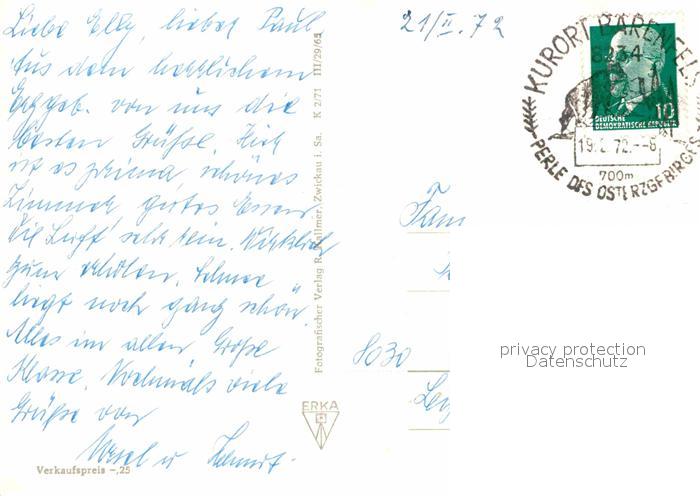 Liebe Elly, lieber Paul,
Aus dem herrlichem
Erzgeb. von uns die
besten Grüße. Hier
ist es prima, schönes
Zimmer, gutes Essen
die Luft sehr rein. Wirklich
zum erholen. Schnee
liegt noch ganz schön.
Alles im allen, Große
Klasse. Nochmals viele
Grüße von
u
Verkaufspreis -,25
Fotografischer Verlag R. Kallmer, Zwickau i. Sa. K 2/71 III/29/65
ERKA
21/II. 72
KURORT BÄRENFELS
8234
10
DEUTSCHE
DEMOKRATISCHE REPUBLIK
19.2.72.--8
700m
PERLE DES OSTERZGEBIRGES
Fam
8030
privacy protection
Datenschutz